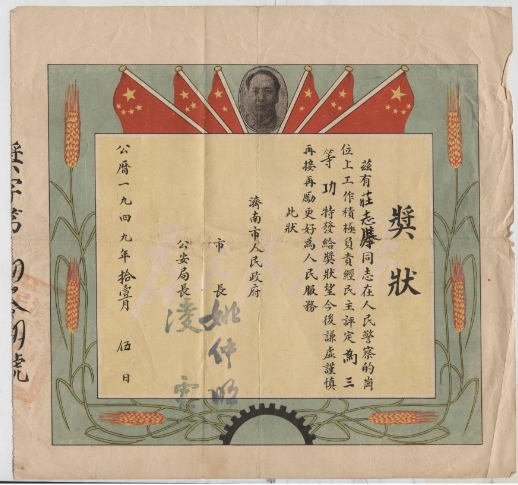 獎狀
茲有莊志騰同志在人民警察的崗
位上工作積極負責經民主評定為三
等功特發給獎狀望今後謙虛謹慎
再接再勵更好為人民服務
此狀
濟南市人民政府
市長 姚仲明
公安局長 凌雲
公曆一九四九年拾壹月伍日
獎字第 號